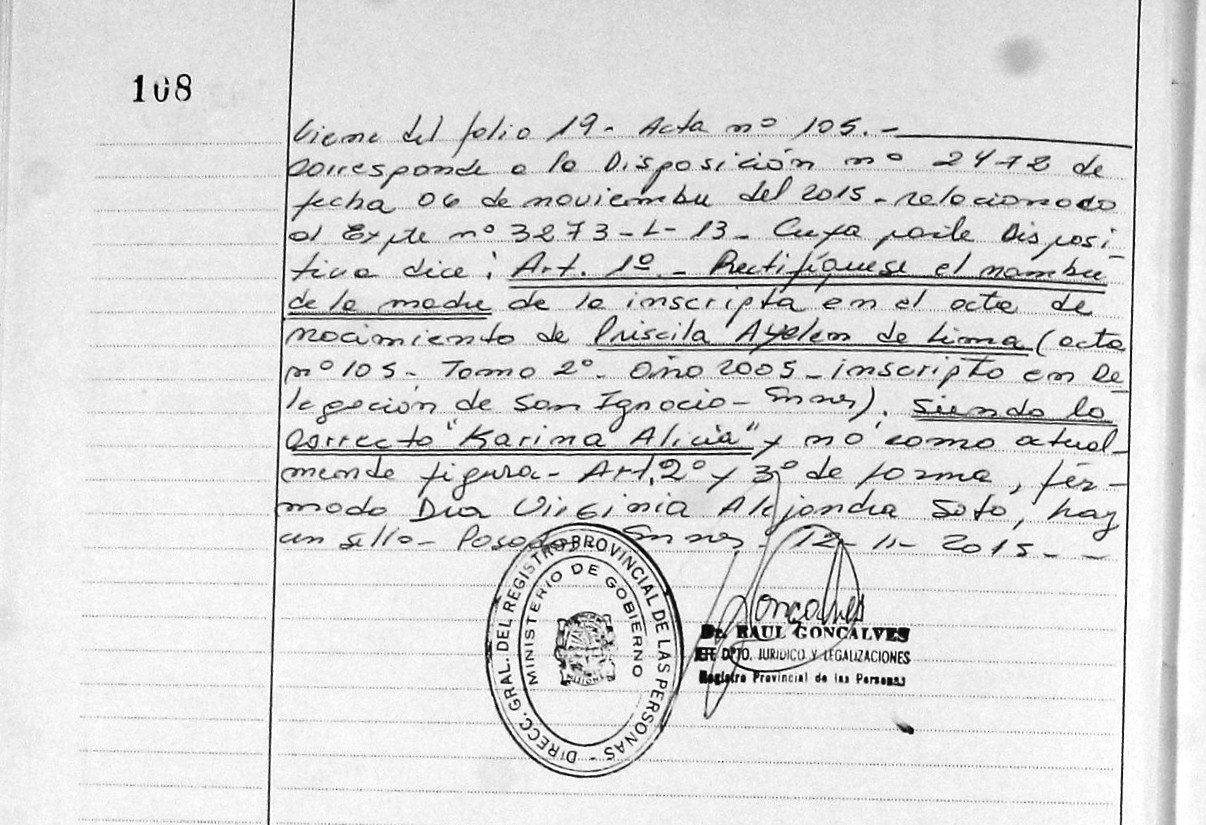 108
Viene del folio 19- Acta nº 105.-
Corresponde a la Disposición nº 2472 de
fecha 06 de noviembre del 2015- relacionado
al Expte nº 3273-L-13- Cuya parte Disposi-
tiva dice: Art. 1º.- Rectifíquese el nombre
de la madre de la inscripta en el acta de
nacimiento de Priscila Ayelem de Lima (acta
nº 105- Tomo 2º- Año 2005- inscripto en De-
legación de San Ignacio- Smnes). Siendo lo
correcto "Karina Alicia" y no como actual-
mente figura- Art. 2º y 3º de forma, fir-
mado Dra Virginia Alejandra Soto, hay
un sello- Posadas, Smnes- 12-11-2015- -
DIRECC. GRAL. DEL REGISTRO PROVINCIAL DE LAS PERSONAS -
MINISTERIO DE GOBIERNO
MISIONES
Goncalves
Dr. RAUL GONCALVES
JEFE DPTO. JURIDICO Y LEGALIZACIONES
Registro Provincial de las Personas